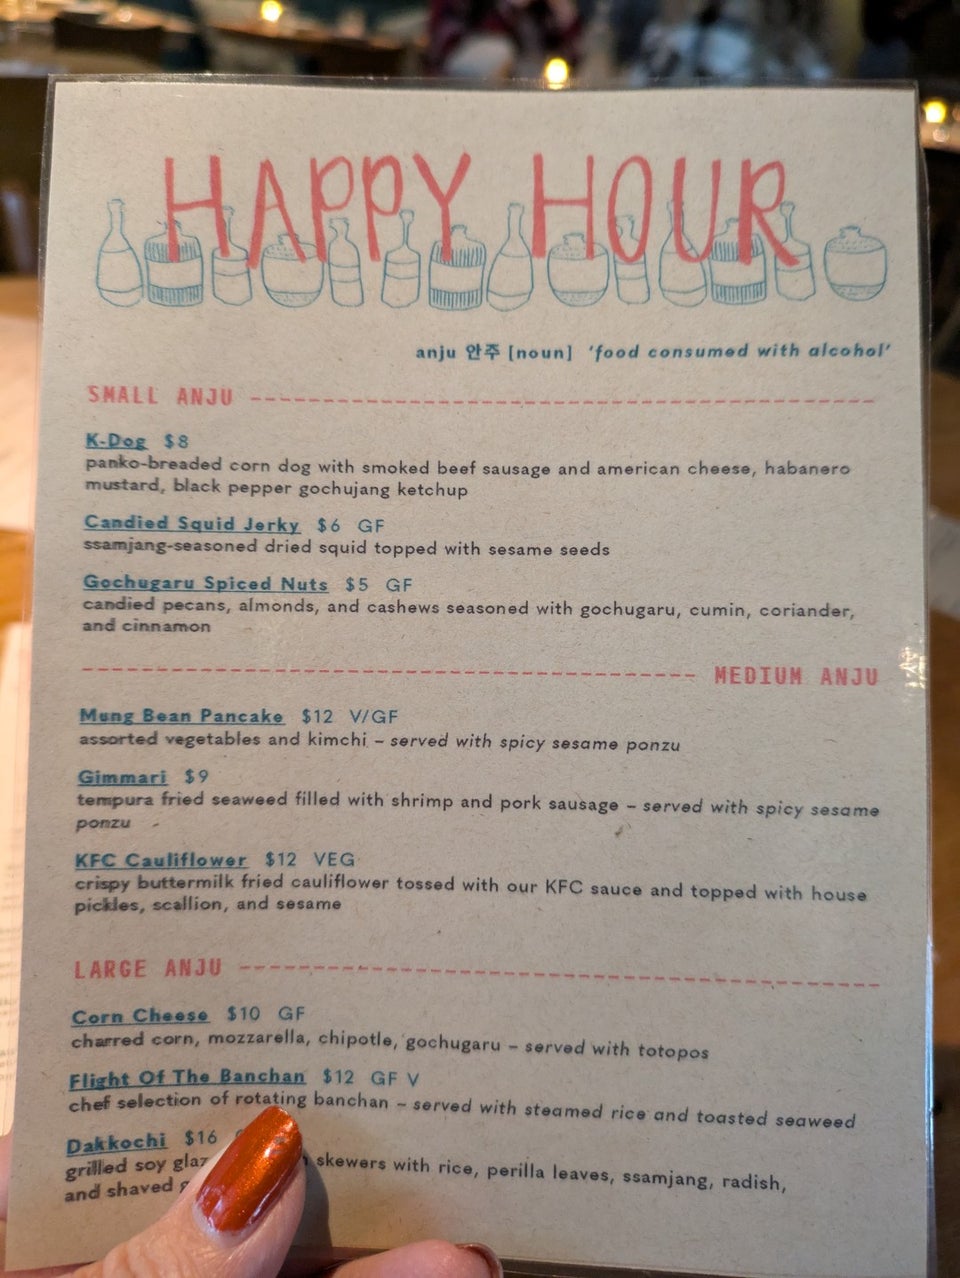 HAPPY HOUR
anju 안주 [noun] 'food consumed with alcohol'
SMALL ANJU
K-Dog $8
panko-breaded corn dog with smoked beef sausage and american cheese, habanero
mustard, black pepper gochujang ketchup
Candied Squid Jerky $6 GF
ssamjang-seasoned dried squid topped with sesame seeds
Gochugaru Spiced Nuts $5 GF
candied pecans, almonds, and cashews seasoned with gochugaru, cumin, coriander,
and cinnamon
MEDIUM ANJU
Mung Bean Pancake $12 V/GF
assorted vegetables and kimchi – served with spicy sesame ponzu
Gimmari $9
tempura fried seaweed filled with shrimp and pork sausage – served with spicy sesame
ponzu
KFC Cauliflower $12 VEG
crispy buttermilk fried cauliflower tossed with our KFC sauce and topped with house
pickles, scallion, and sesame
LARGE ANJU
Corn Cheese $10 GF
charred corn, mozzarella, chipotle, gochugaru – served with totopos
Flight Of The Banchan $12 GF V
chef selection of rotating banchan – served with steamed rice and toasted seaweed
Dakkochi $16
grilled soy skewers with rice, perilla leaves, ssamjang, radish,
and shaved